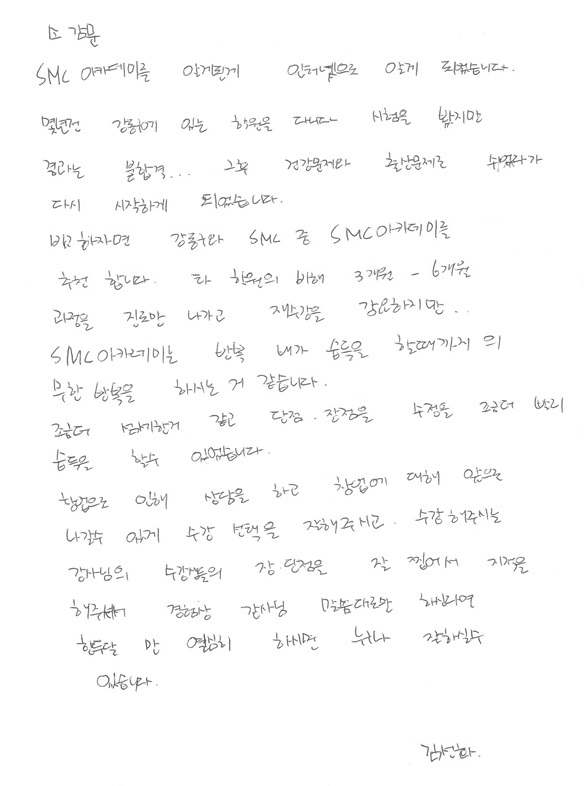 소감문
SMC 아카데미를 알게된게 인터넷으로 알게 되었습니다.
몇년전 강동구에 있는 학원을 다니다 시험을 봤지만
결과는 불합격... 그후 건강문제와 출산문제로 쉬었다가
다시 시작하게 되었습니다.
비교하자면 강동구와 SMC 중 SMC아카데미를
추천 합니다. 타 학원의 비해 3개월 - 6개월
과정을 진로만 나가고 재수강을 강요하지만..
SMC아카데미는 반복 내가 습득을 할때까지의
무한 반복을 하시는 거 같습니다.
조금더 섬세한거 같고 단점.장점을 수정을 조금더 빨리
습득을 할수 있었습니다.
창업으로 인해 상담을 하고 창업에 대해 앞으로
나갈수 있게 수강 선택을 잘해주시고. 수강해주시는
강사님의 수강생들의 장.단점을 잘 찝어서 지적을
해주셔서 강사님 말씀대로만 하신다면
한두달 만 열심히 하시면 누구나 잘하실수
있습니다.
김선화.